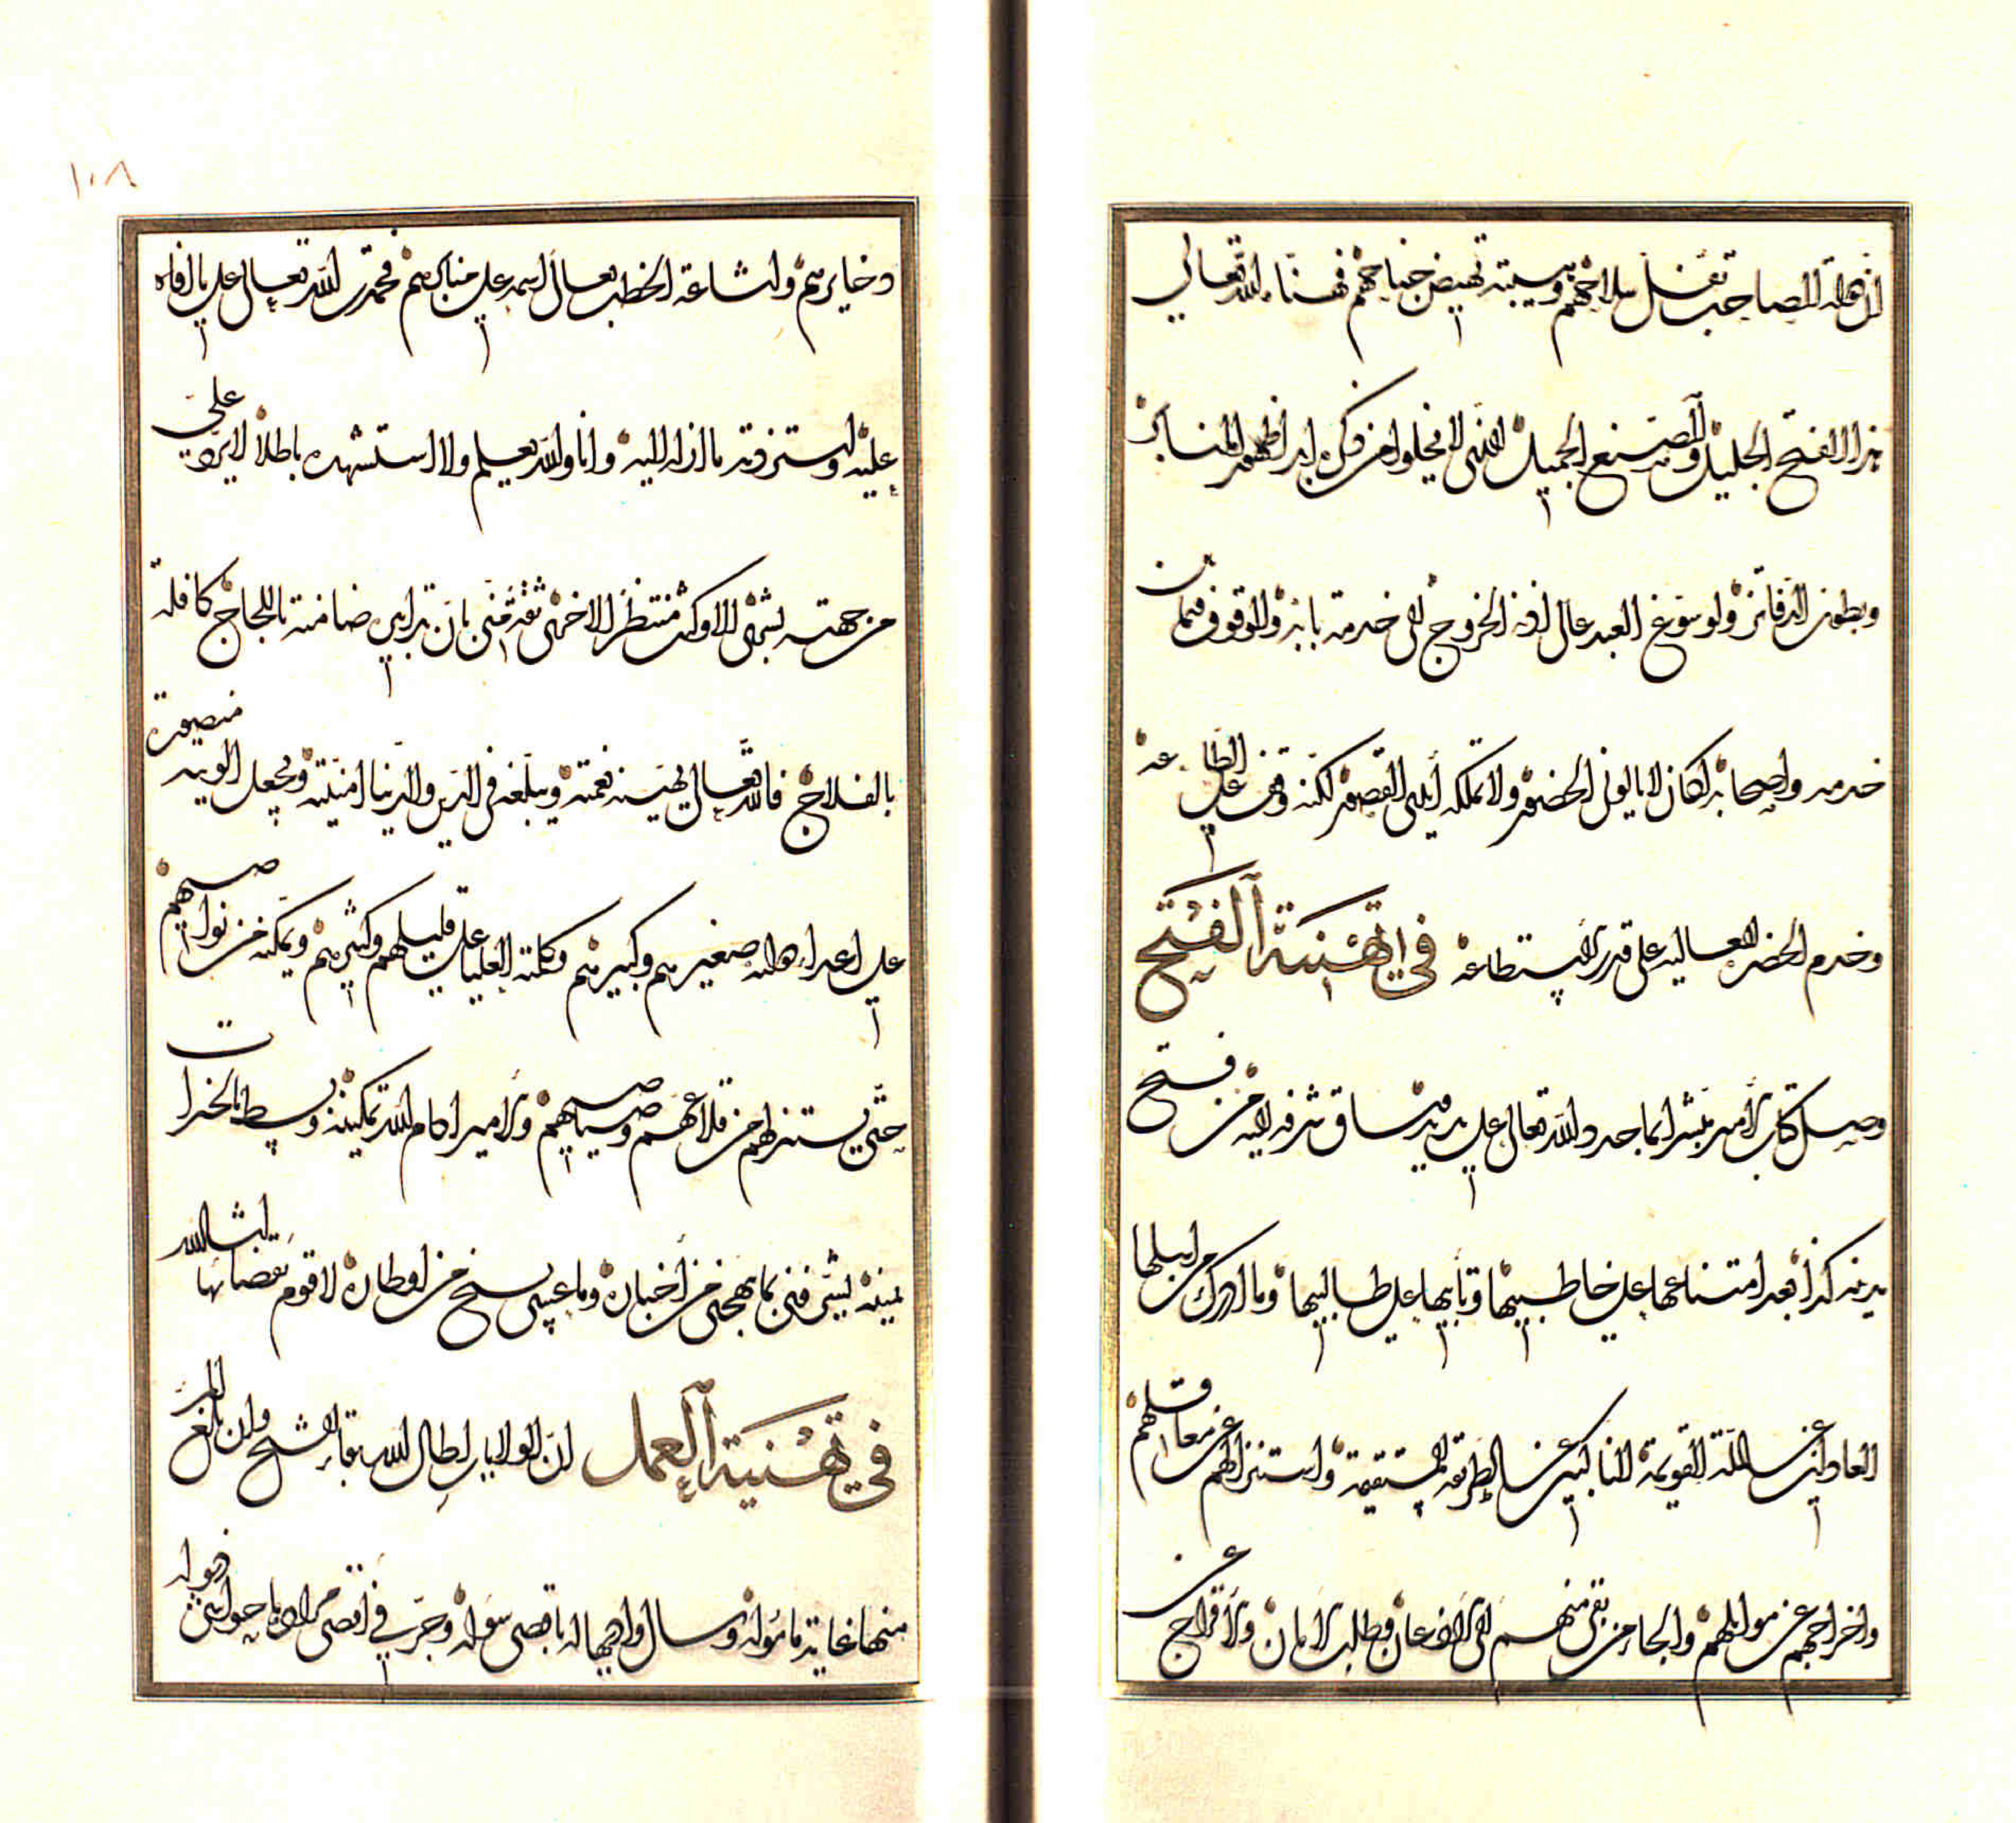 ان هذه المصاحب تفل سلاحهم وهيبته تهيض جناحهم فهناه الله تعالى
هذا الفتح الجليل والصنع الجميل الذي لا يخلو من ذكره ابدا ظهور المنابر
وبطون الدفاتر ولو سوغ العبد عالي اذنه الخروج الى خدمة بابه والوقوف فيمن
خدمه واصحابه لكان لا يألو في الحضور ولا تملكه أيدي القصور لكنه وقف على الطاعه
وخدم الحضرة العاليه على قدر الاستطاعه في تهنية الفتح
وصل كتاب الأمير مبشرا بما جدده الله تعالى على يديه وساق شرفه اليه من فتح
مدينة كذا بعد امتناعها على خاطبيها وتأبيها على طالبيها وما ادرك من اهلها
العادلين عن الملة القويمة الناكبين عن الطريقة المستقيمة واستنزالهم عن معاقلهم
واخراجهم عن موائلهم والجاء من بقي منهم الى الاذعان وطلب الأمان والأفراج عن
ذخايرهم واشاعة الخطب تعالى اسمه على منابرهم فحمدت الله تعالى على ما افاه
عليه واستزدته ما ازله اليه وانا والله يعلم ولا استشهده باطلا لا يرد علي
من جهته بشرى الا وكنت منتظرا لاخرى ثقة مني بان تدابيره ضامنة باللجاج كافلة
بالفلاح فالله تعالى يهنيه نعمته ويبلغه في الدين والدنيا امنيته ويجعل الويته منصورة
على اعداء الله صغيرهم وكبيرهم وكلمته العليا على قليلهم وكثيرهم ويمكنه من نواصيهم
حتى يستنزلهم من قلاعهم وصياصيهم والأمير ادام الله تمكينه وبسط بالخيرات
يمينه يشرفني بما يبهجني من أخباره وما عسى يسنح من اوطاره لاقوم بقضائها انشاالله
في تهنية العمل ان الولايات اطال الله بقا الشيخ وان بلغ المرء
منها غاية مأموله وسال واديها له باقصى سوله وجرت في اقصى مراده باحواله فهو له
١٠٨